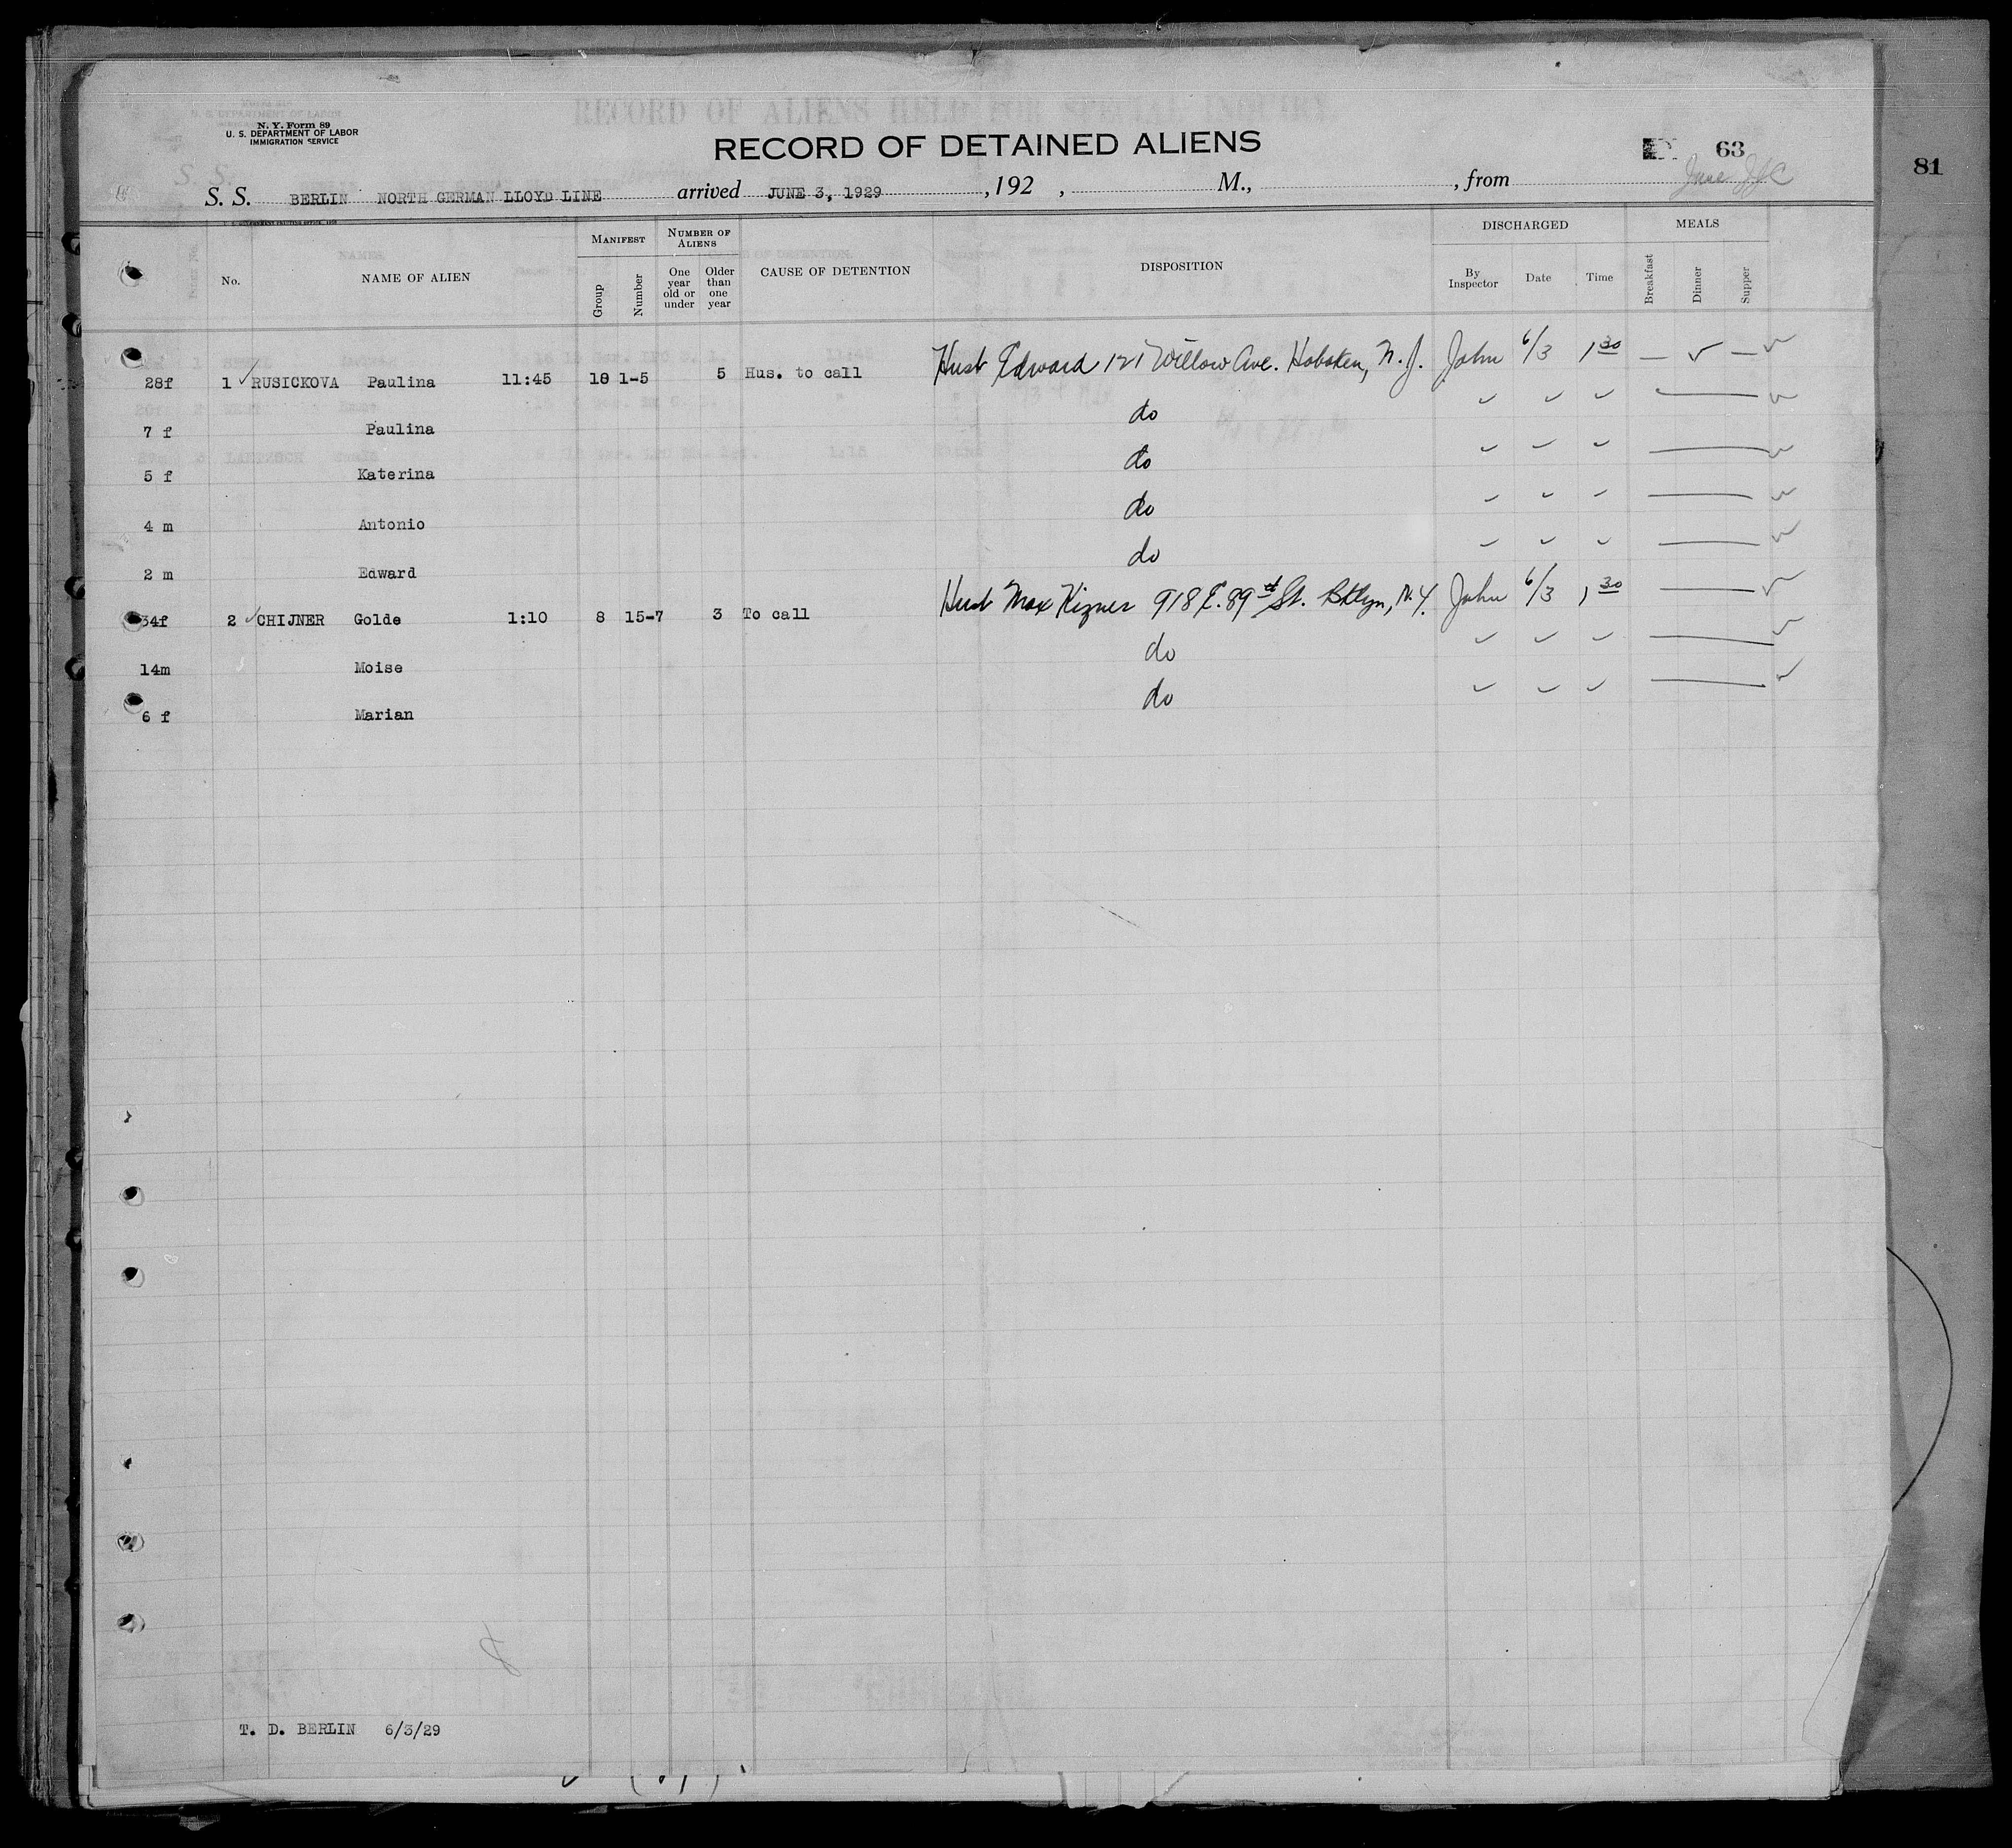 N. Y. Form 89
U. S. DEPARTMENT OF LABOR
IMMIGRATION SERVICE
RECORD OF ALIENS HELD FOR SPECIAL INQUIRY.
RECORD OF DETAINED ALIENS
63
81
S. S. BERLIN NORTH GERMAN LLOYD LINE arrived JUNE 3, 1929, 192 , M., , from
No. NAME OF ALIEN MANIFEST NUMBER OF ALIENS CAUSE OF DETENTION DISPOSITION DISCHARGED MEALS
Group Number One year old or under Older than one year By Inspector Date Time Breakfast Dinner Supper
28f 1 ✓ RUSICKOVA Paulina 11:45 10 1-5 5 Hus. to call Husb Edward 121 Willow Ave. Hoboken, N. J. John 6/3 1 30 — ✓ — ✓
7 f Paulina do ✓ ✓ ✓ — ✓
5 f Katerina do ✓ ✓ ✓ — ✓
4 m Antonio do ✓ ✓ ✓ — ✓
2 m Edward do ✓ ✓ ✓ — ✓
34f 2 ✓ CHIJNER Golde 1:10 8 15-7 3 To call Husb Max Kizner 918 E. 89th St. Bklyn, N.Y. John 6/3 1 30 — ✓
14m Moise do ✓ ✓ ✓ — ✓
6 f Marian do ✓ ✓ ✓ — ✓
T. D. BERLIN 6/3/29